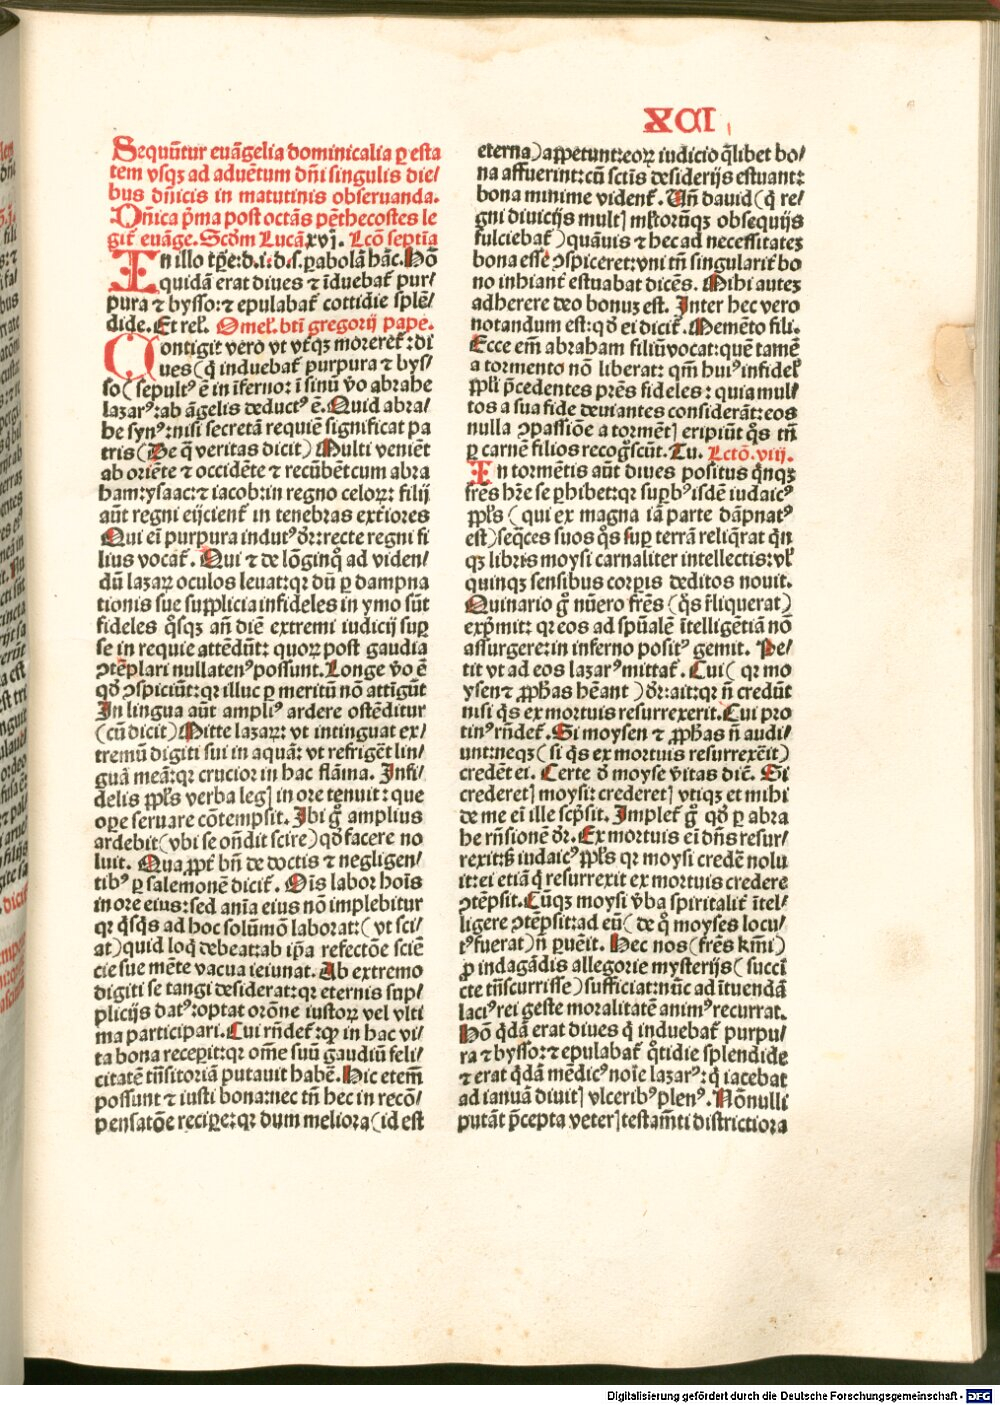 XCI
Sequũtur euãgelia dominicalia ꝑ esta
tem vsqꝫ ad aduẽtum dñi singulis die/
bus dñicis in matutinis obseruanda.
Dñica p̃ma post octãs pẽthecostes le
git̃ euãge. Scd̃m Lucã xvj. Lcõ septĩa
In illo tp̃e: d. i. d. s. ꝑabolã hãc. Hõ
quidã erat diues ⁊ ĩduebat̃ pur/
pura ⁊ bysso: ⁊ epulabat̃ cottidie splẽ/
dide. Et rel̃. Omel̃. bti̇̃ gregorij pape.
Contigit vero vt vtqꝫ moreret̃: di
ues (q̃ induebat̃ purpura ⁊ bys/
so) sepultꝰ ẽ in ĩferno: ĩ sinũ ṽo abrahe
lazarꝰ: ab ãgelis deductꝰ ẽ. Quid abra/
he synꝰ: nisi secretã requiẽ significat pa
tris (De q̃ veritas dicit) Multi veniẽt
ab oriẽte ⁊ occidẽte ⁊ recũbẽt cum abra
ham: ysaac: ⁊ iacob: in regno celoꝝ: filij
aũt regni eijcient̃ in tenebras ext̃iores
Qui eĩ purpura indutꝰ dr̃: recte regni fi
lius vocat̃. Qui ⁊ de lõginq̃ ad viden/
dũ lazaꝝ oculos leuat: qꝛ dũ ꝑ dampna
tionis sue supplicia infideles in ymo sũt
fideles q̃sqꝫ añ diẽ extremi iudicij sup̱
se in requie attẽdũt: quoꝝ post gaudia
ↄtẽplari nullatenꝰ possunt. Longe ṽo ẽ
qd̃ ↄspiciũt: qꝛ illuc ꝑ meritũ nõ attĩgũt
In lingua aũt ampliꝰ ardere ostẽditur
(cũ dicit) Mitte lazaꝝ: vt intinguat ex/
tremũ digiti sui in aquã: vt refrigẽt lin/
guã meã: qꝛ crucior in hac flãma. Infi/
delis ppl̃s verba legꝭ in ore tenuit: que
oꝑe seruare cõtempsit. Ibi g̃ amplius
ardebit (vbi se oñdit scire) qd̃ facere no
luit. Quapp̃t bñ de doctis ⁊ negligen/
tibꝰ ꝑ salemonẽ dicit̃. Oĩs labor hoĩs
in ore eius: sed anĩa eius nõ implebitur
qꝛ q̃sq̃s ad hoc solũmõ laborat: (vt sci/
at) quid loq̃ debeat: ab ip̃a refectõe sciẽ
cie sue mẽte vacua ieiunat. Ab extremo
digiti se tangi desiderat: qꝛ eternis sup/
plicijs datꝰ: optat orõne iustoꝝ vel vlti
ma participari. Cui rñdet̃: ꝙ in hac vi/
ta bona receꝑit: qꝛ om̃e suũ gaudiũ feli/
citatẽ tñsitoriã putauit habẽ. Hic etem̃
possunt ⁊ iusti bona: nec tñ hec in recõ/
pensatõe reciꝑe: qꝛ dum meliora (id est
eterna) appetunt: eoꝝ iudicio q̃libet bo/
na affuerint: cũ sctĩs desiderijs estuant:
bona minime vident̃. Vñ dauid (q̃ re/
gni diuicijs multꝭ mĩstrorũqꝫ obsequijs
fulciebat̃) quãuis ⁊ hec ad necessitatẽ
bona esse ↄspiceret: vni tñ singularit̃ bo
no inhiant̃ estuabat dicẽs. Mihi autẽ
adherere deo bonuꝫ est. Inter hec vero
notandum est: qd̃ ei dicit̃. Memẽto fili.
Ecce em̃ abraham filiũ vocat: quẽ tamẽ
a tormento nõ liberat: qm̃ huiꝰ infidel̃
ppl̃i p̃cedentes prẽs fideles: quia mul/
tos a sua fide deuiantes considerãt: eos
nulla ↄpassiõe a tormẽtꝭ eripiũt q̃s tñ
ꝑ carnẽ filios recog̃scũt. Tu. Lctõ. viij.
In tormẽtis aũt diues positus q̃nqꝫ
fr̃es hr̃e se ꝑhibet: qꝛ suꝑbꝰ isdẽ iudaicꝰ
ppl̃s (qui ex magna iã parte dãpnatꝰ
est) seq̃ces suos q̃s suꝑ terrã reliq̃rat q̃n
qꝫ libris moysi carnaliter intellectis: vl̃
quinqꝫ sensibus corꝑis deditos nouit.
Quinario g̃ nũero fr̃es (q̃s r̃liquerat)
exp̃mit: qꝛ eos ad sp̃ualẽ ĩtelligẽtiã nõ
assurgere: in inferno positꝰ gemit. Pe/
tit vt ad eos lazarꝰ mittat̃. Cui (qꝛ mo
ysen ⁊ ꝓph̃as hẽant) dr̃: ait: qꝛ ñ credũt
nisi q̃s ex mortuis resurrexerit. Cui pro
tinꝰ rñdet̃. Si moysen ⁊ ꝓph̃as ñ audi/
unt: neqꝫ (si q̃s ex mortuis resurrexẽit)
credẽt ei. Certe d̃ moyse ṽitas diẽ. Si
crederetꝭ moysi: crederetꝭ vtiqꝫ et mihi
de me eĩ ille scp̃sit. Implet̃ g̃ qd̃ ꝑ abra
he rñsionẽ dr̃. Ex mortuis eĩ dñs resur/
rexit: sꝫ iudaicꝰ ppl̃s qꝛ moysi credẽ nolu
it: ei etiã q̃ resurrexit ex mortuis credere
ↄtẽpsit. Cũqꝫ moysi ṽba spiritalit̃ ĩtel/
ligere ↄtẽpsit: ad eũ (de q̊ moyses locu/
tꝰ fuerat) ñ ꝑuẽit. Hec nos (fr̃es km̃i)
ꝓ indagãdis allegorie mysterijs (succi
cte tñscurrisse) sufficiat: nũc ad ĩtuendã
laciꝰ rei geste moralitatẽ animꝰ recurrat.
Hõ q̃dã erat diues q̃ induebat̃ purpu/
ra ⁊ bysso: ⁊ epulabat̃ q̊tidie splendide
⁊ erat q̃dã mẽdicꝰ noĩe lazarꝰ: q̃ iacebat
ad ianuã diuitꝭ vlceribꝰ plenꝰ. Nõnulli
putãt p̃cepta veterꝭ testam̃ti districtiora
Digitalisierung gefördert durch die Deutsche Forschungsgemeinschaft - DFG